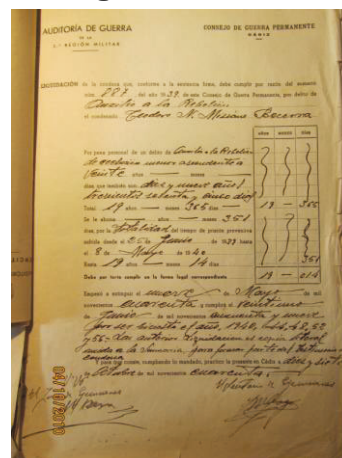 AUDITORÍA DE GUERRA
DE LA
2.ª REGIÓN MILITAR
CONSEJO DE GUERRA PERMANENTE
CÁDIZ
LIQUIDACIÓN de la condena que, conforme a la sentencia firme, debe cumplir por razón del sumario
núm. 887 del año 1939, de este Consejo de Guerra Permanente, por delito de
Auxilio a la Rebelión
el condenado Teodoro N. Messana Becerra
años meses días
Por pena personal de un delito de Auxilio a la Rebelión
de reclusión menor ascendente a
veinte años — meses —
días, que también son diez y nueve años
trescientos sesenta y cinco días
Total 19 años — meses 365 días 19 — 365
Se le abona — años — meses 351
días, por la totalidad del tiempo de prisión preventiva
sufrida desde el 2 de Junio de 1939 hasta
el 8 de Mayo de 1940 351
Resta 19 años — meses 14 días
Debe por tanto cumplir en la forma legal correspondiente 19 — 014
Empezó a extinguir el nueve de Mayo de mil
novecientos cuarenta y cumplirá el veintiuno
de Junio de mil novecientos cincuenta y nueve
por ser bisiesto el año, 1940, 44, 48, 52
y 56 = La anterior liquidación es según
condena
Y para que conste, cumpliendo lo mandado, practico la presente en Cádiz a diez y siete
de Octubre de mil novecientos cuarenta.
04/10/2010